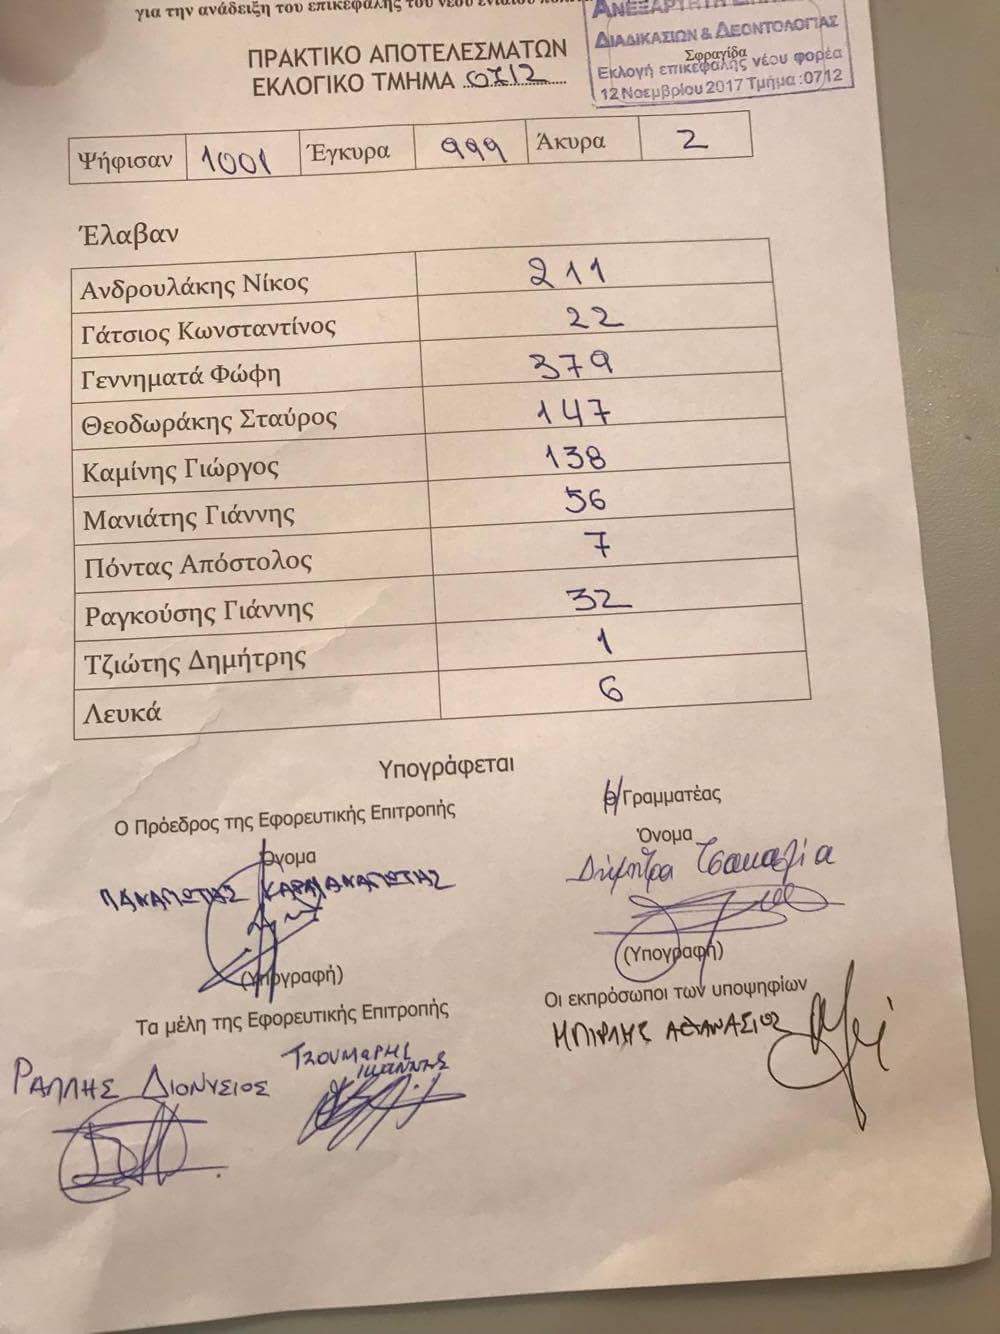 για την ανάδειξη του επικεφαλής του νέου ενιαίου
ΑΝΕΞΑΡΤΗΤΗ
ΔΙΑΔΙΚΑΣΙΩΝ & ΔΕΟΝΤΟΛΟΓΙΑΣ
Σφραγίδα
Εκλογή επικεφαλής νέου φορέα
12 Νοεμβρίου 2017 Τμήμα :0712
ΠΡΑΚΤΙΚΟ ΑΠΟΤΕΛΕΣΜΑΤΩΝ
ΕΚΛΟΓΙΚΟ ΤΜΗΜΑ 0712
Ψήφισαν 1001 Έγκυρα 999 Άκυρα 2
Έλαβαν
Ανδρουλάκης Νίκος 211
Γάτσιος Κωνσταντίνος 22
Γεννηματά Φώφη 379
Θεοδωράκης Σταύρος 147
Καμίνης Γιώργος 138
Μανιάτης Γιάννης 56
Πόντας Απόστολος 7
Ραγκούσης Γιάννης 32
Τζιώτης Δημήτρης 1
Λευκά 6
Υπογράφεται
Ο Πρόεδρος της Εφορευτικής Επιτροπής
Όνομα
(Υπογραφή)
Γραμματέας
Όνομα
Δήμητρα
(Υπογραφή)
Τα μέλη της Εφορευτικής Επιτροπής
ΡΑΛΛΗΣ ΔΙΟΝΥΣΙΟΣ
ΤΖΟΥΜΑΡΗΣ
ΙΩΑΝΝΗΣ
Οι εκπρόσωποι των υποψηφίων
ΑΘΑΝΑΣΙΟΣ